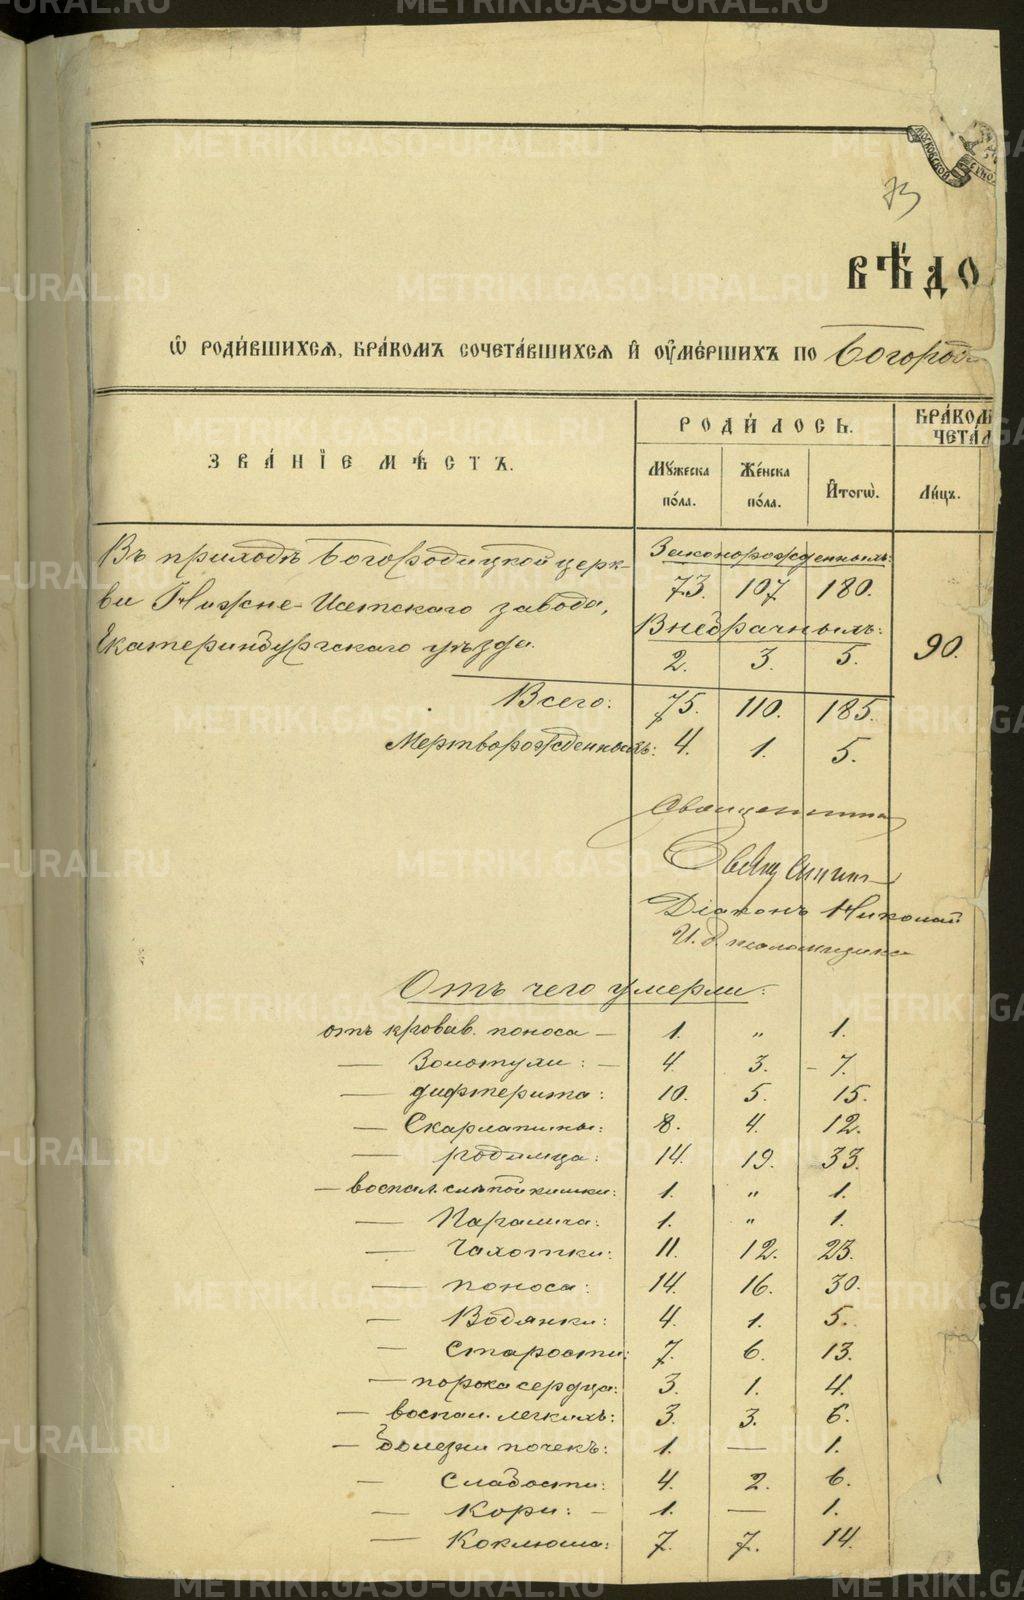 МОСКОВСКОЙ
73
ВѢДО
Ѡ РОДИ́ВШИХСѦ, БРА́КОМЪ СОЧЕТА́ВШИХСѦ И҆ ОУ҆МЕ́РШИХЪ ПО Богород
ЗВА́НІЕ МѢ́СТЪ.
РОДИ́ЛОСЬ.
БРА́КОМ
ЧЕТА́Л
Мꙋ́жеска по́ла.
Же́нска по́ла.
И҆тогѡ̀.
Ли́цъ.
Въ приходѣ Богородицкой церк-
ви Нижне-Исетскаго завода,
Екатеринбургскаго уѣзда.
Законорожденныхъ:
73. 107 180.
Внебрачныхъ:
2. 3. 5.
90.
Всего: 75. 110. 185.
Мертворожденныхъ: 4. 1. 5.
Священник
Діаконъ Николай
И. д. псаломщика
Отъ чего умерли:
отъ кровав. поноса — 1. „ 1.
— Золотухи: — 4. 3. — 7.
— дифтерита: 10. 5. 15.
— Скарлатины: 8. 4. 12.
— родимца: 14. 19. 33.
— воспал. слѣпой кишки: 1. „ 1.
— Паралича: 1. „ 1.
— Чахотки: 11. 12. 23.
— поноса: 14. 16. 30.
— Водянки: 4. 1. 5.
— Старости: 7. 6. 13.
— порока сердца: 3. 1. 4.
— воспал. легкихъ: 3. 3. 6.
— болезни почекъ: 1. — 1.
— Слабости: 4. 2. 6.
— Кори: — 1. — 1.
— Коклюша: 7. 7. 14.
METRIKI.GASO-URAL.RU